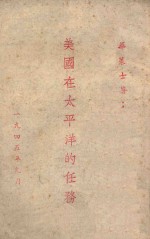 士著
美國在太平洋的任務
一九四五年 月